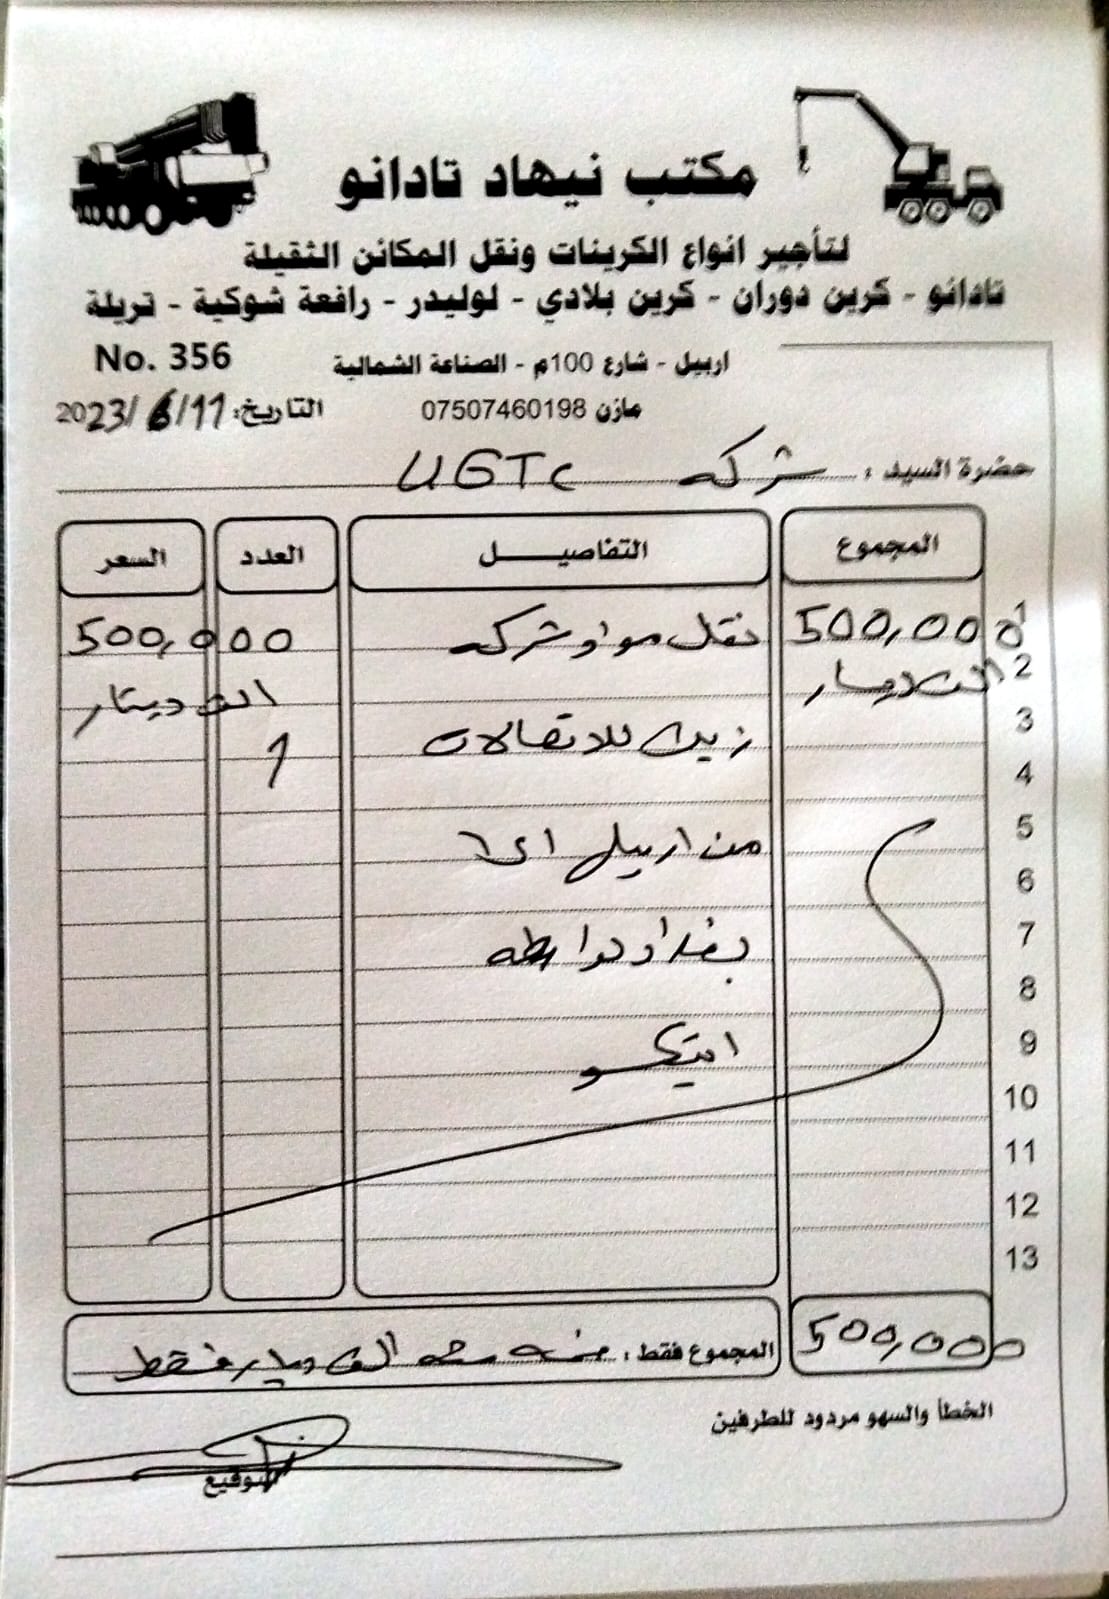 مكتب نيهاد تادانو
لتأجير انواع الكرينات ونقل المكائن الثقيلة
تادانو - كرين دوران - كرين بلادي - لوليدر - رافعة شوكية - تريلة
اربيل - شارع 100م - الصناعة الشمالية
No. 356
مازن 07507460198
التاريخ: 2023/6/11
حضرة السيد : شركه UGTC
المجموع التفاصيل العدد السعر
1 500,000 نقل مواد شركه 500,000
2 الف دينار الف دينار
3 زين للاتصالات 1
4
5 من اربيل الى
6
7 بغداد بواسطه
8
9 ايتكو
10
11
12
13
500,000 المجموع فقط : خمسه مئه الف دينار فقط
الخطأ والسهو مردود للطرفين
التوقيع